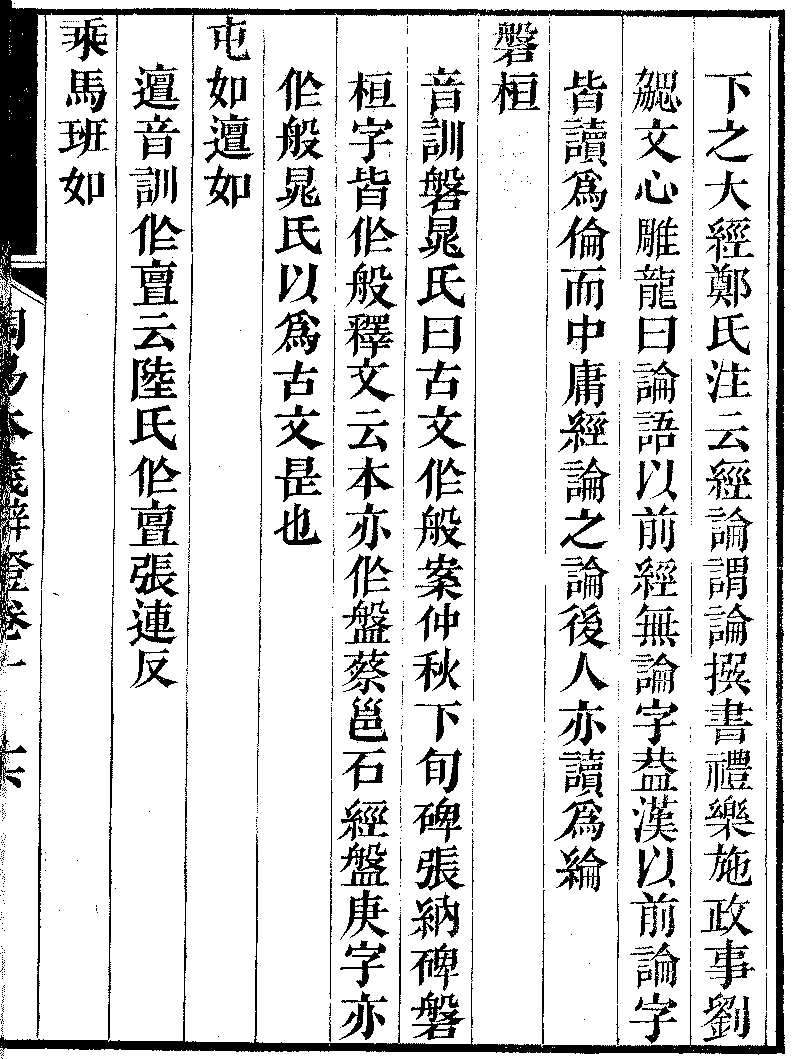 下之大經鄭氏注云經論謂論撰書禮樂施政事劉
勰文心雕龍曰論語以前經無論字葢漢以前論字
皆讀爲倫而中庸經論之論後人亦讀爲綸
磐桓
音訓磐晁氏曰古文作般案仲秋下旬碑張納碑磐
桓字皆作般釋文云本亦作盤蔡邕石經盤庚字亦
作般晁氏以爲古文是也
屯如邅如
邅音訓作亶云陸氏作亶張連反
乘馬班如
周易本義辯證卷一 六